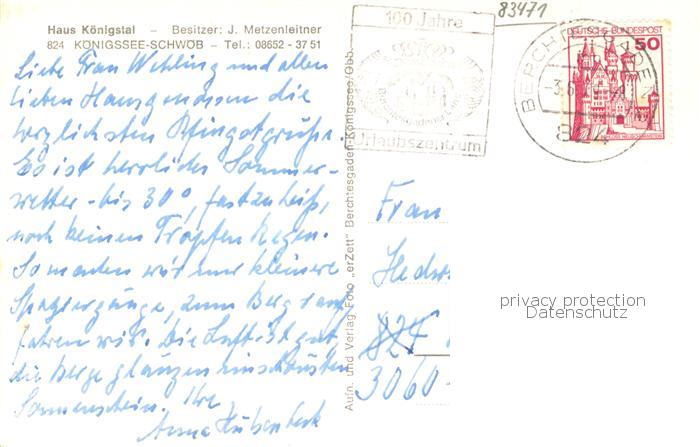 Haus Königstal - Besitzer: J. Metzenleitner
824 KÖNIGSSEE-SCHWÖB - Tel.: 08652 - 37 51
Liebe Frau Wehling und allen
lieben Hausgenossen die
herzlichsten Pfingstgrüße.
Es ist herrliches Sommer-
wetter - bis 30°, fast zu heiß,
noch keinen Tropfen Regen.
So machen wir nur kleinere
Spaziergänge, zum Berg rauf
fahren wir. Die Luft ist gut,
die Berge glänzen im schönsten
Sonnenschein. Ihre
Anna
Aufn. und Verlag Foto „erZett" Berchtesgaden-Königssee/Obb.
100 Jahre
Urlaubszentrum
83471
BERCHTESGADEN
824
DEUTSCHE BUNDESPOST
50
Frau
824
3060
privacy protection
Datenschutz